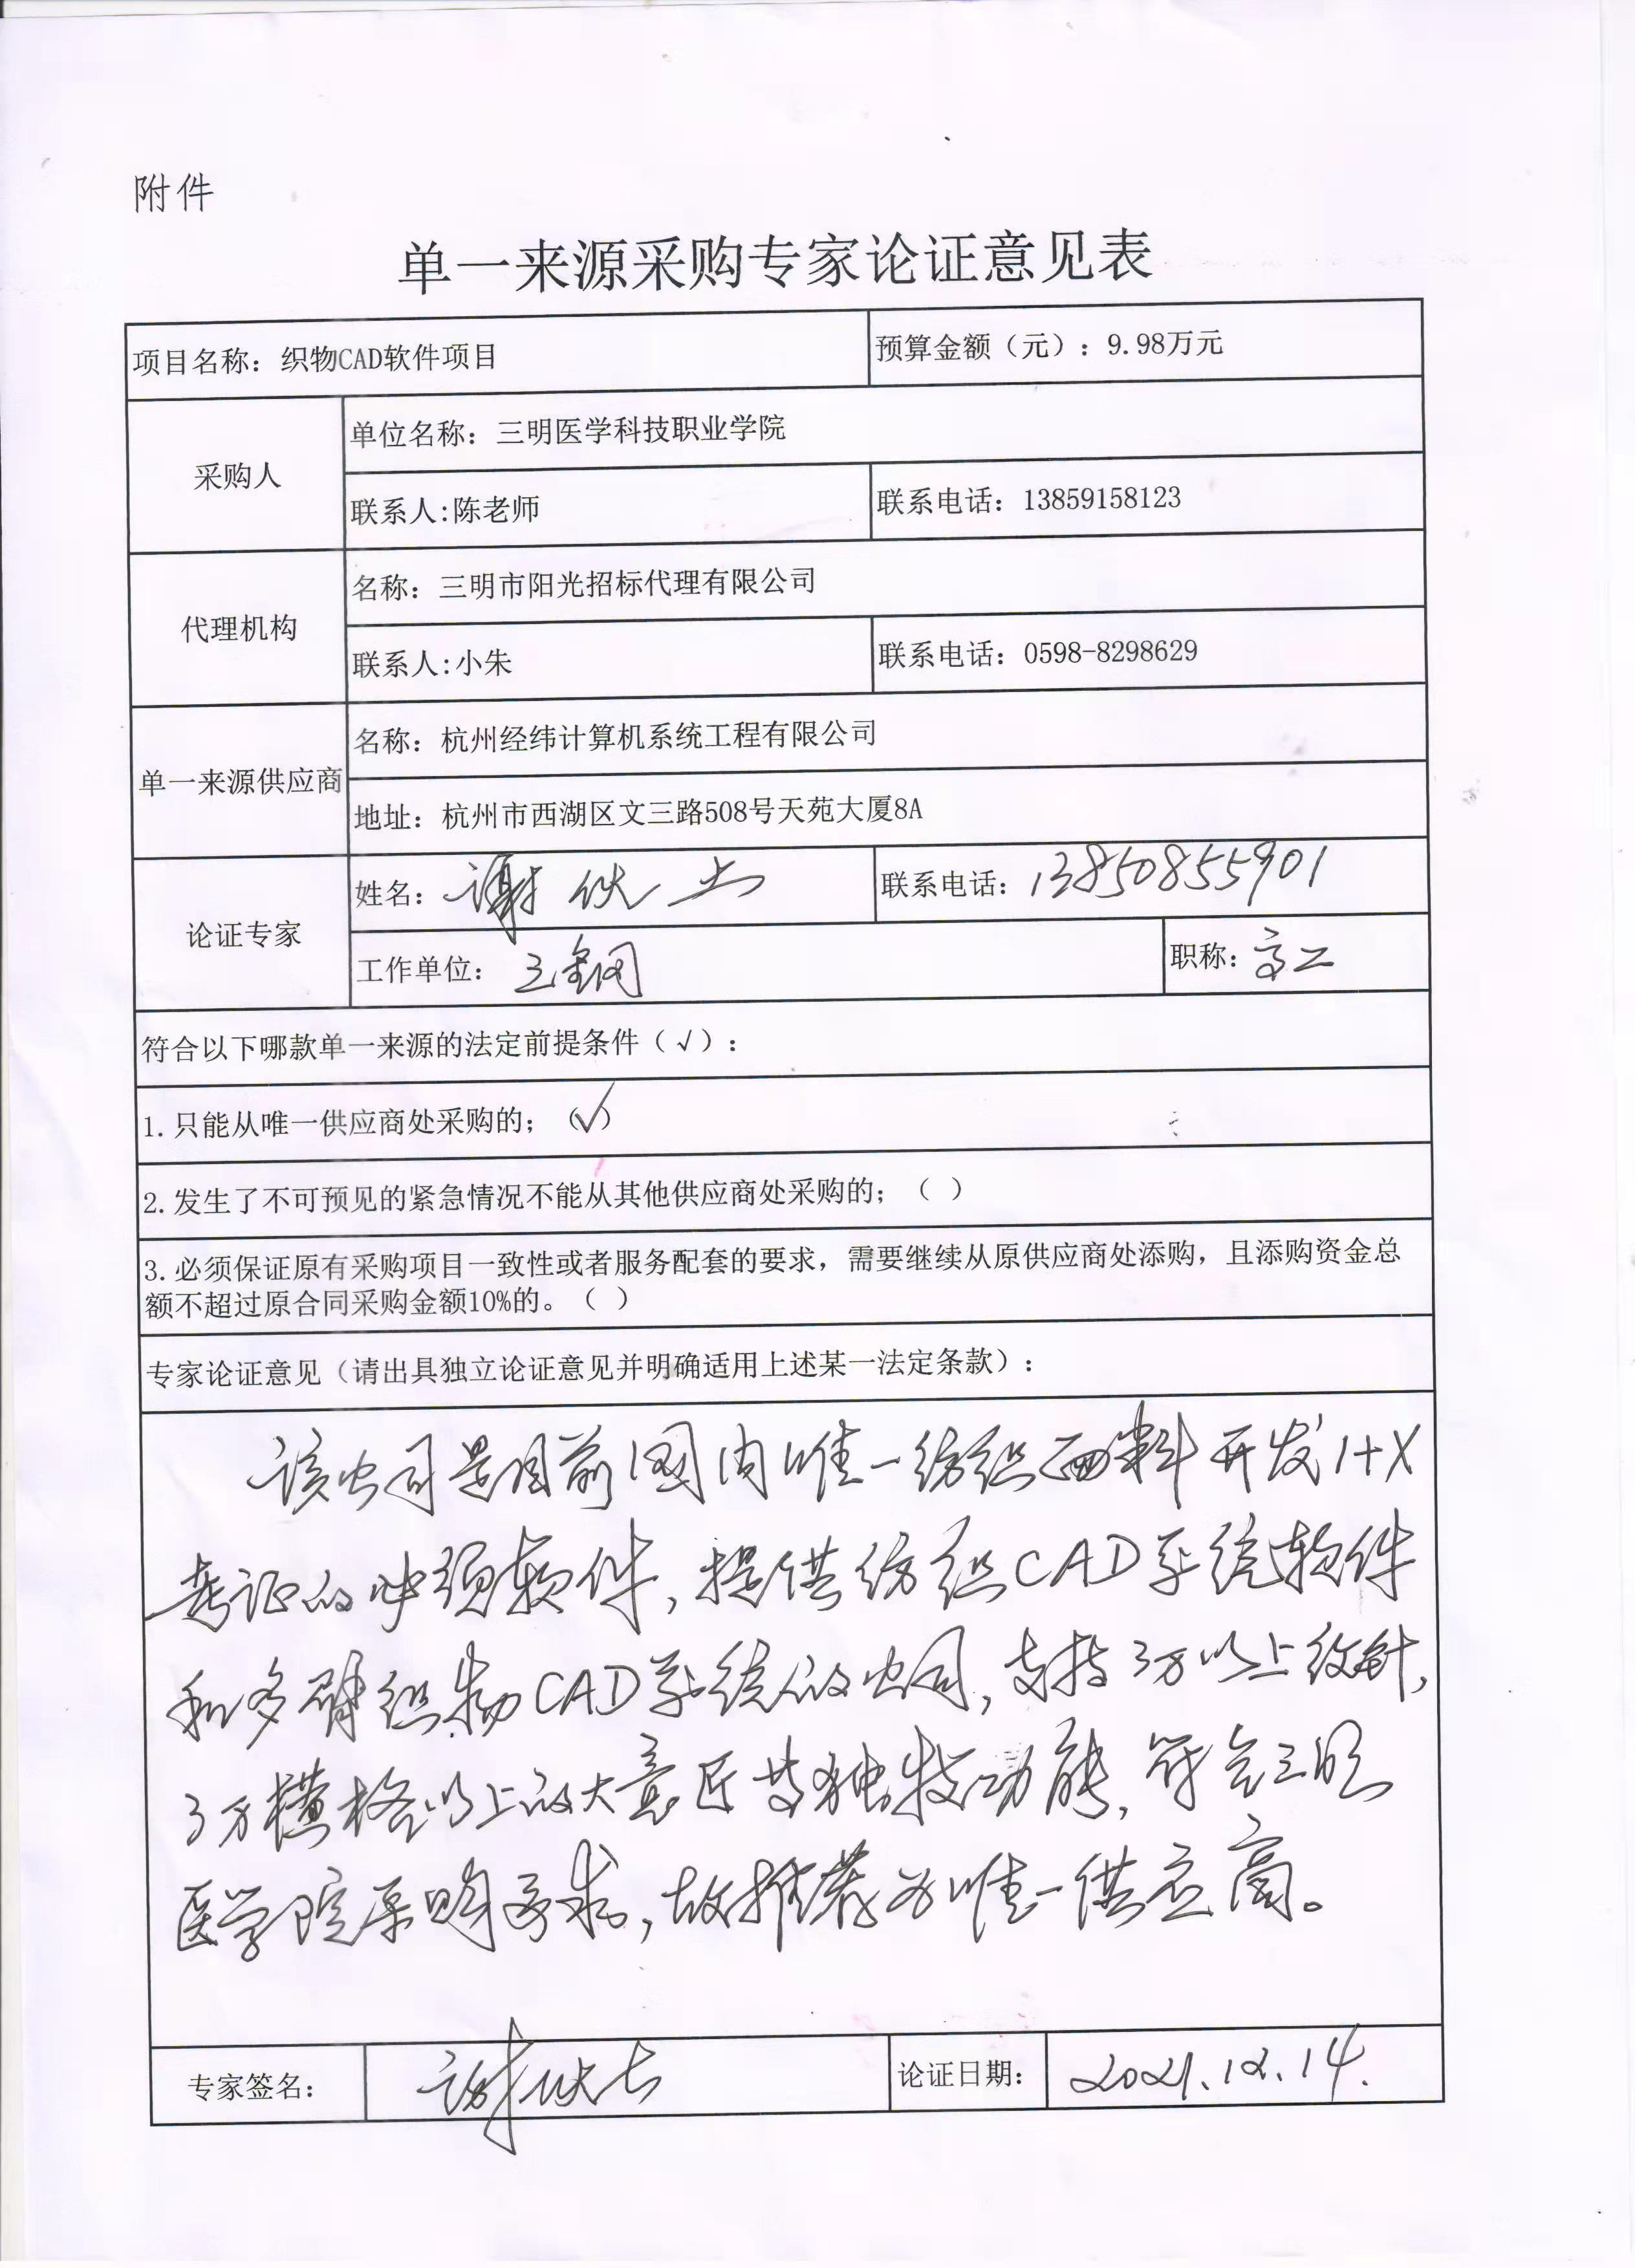 附件
单一来源采购专家论证意见表
项目名称：织物CAD软件项目 预算金额（元）：9.98万元
采购人
单位名称：三明医学科技职业学院
联系人:陈老师 联系电话：13859158123
代理机构
名称：三明市阳光招标代理有限公司
联系人:小朱 联系电话：0598-8298629
单一来源供应商
名称：杭州经纬计算机系统工程有限公司
地址：杭州市西湖区文三路508号天苑大厦8A
论证专家
姓名：谢 联系电话：13850855901
工作单位：三钢 职称：高工
符合以下哪款单一来源的法定前提条件（√）：
1.只能从唯一供应商处采购的；（√）
2.发生了不可预见的紧急情况不能从其他供应商处采购的；（ ）
3.必须保证原有采购项目一致性或者服务配套的要求，需要继续从原供应商处添购，且添购资金总
额不超过原合同采购金额10%的。（ ）
专家论证意见（请出具独立论证意见并明确适用上述某一法定条款）：
该公司是目前国内唯一纺织面料开发1+X
考证的软件，提供纺织CAD系统软件
和多臂织物CAD系统的公司，支持3万以上纹针，
3万横格以上的大意匠等独特功能，符合三明
医学院采购要求，故推荐为唯一供应商。
专家签名：谢 论证日期：2021.12.14.